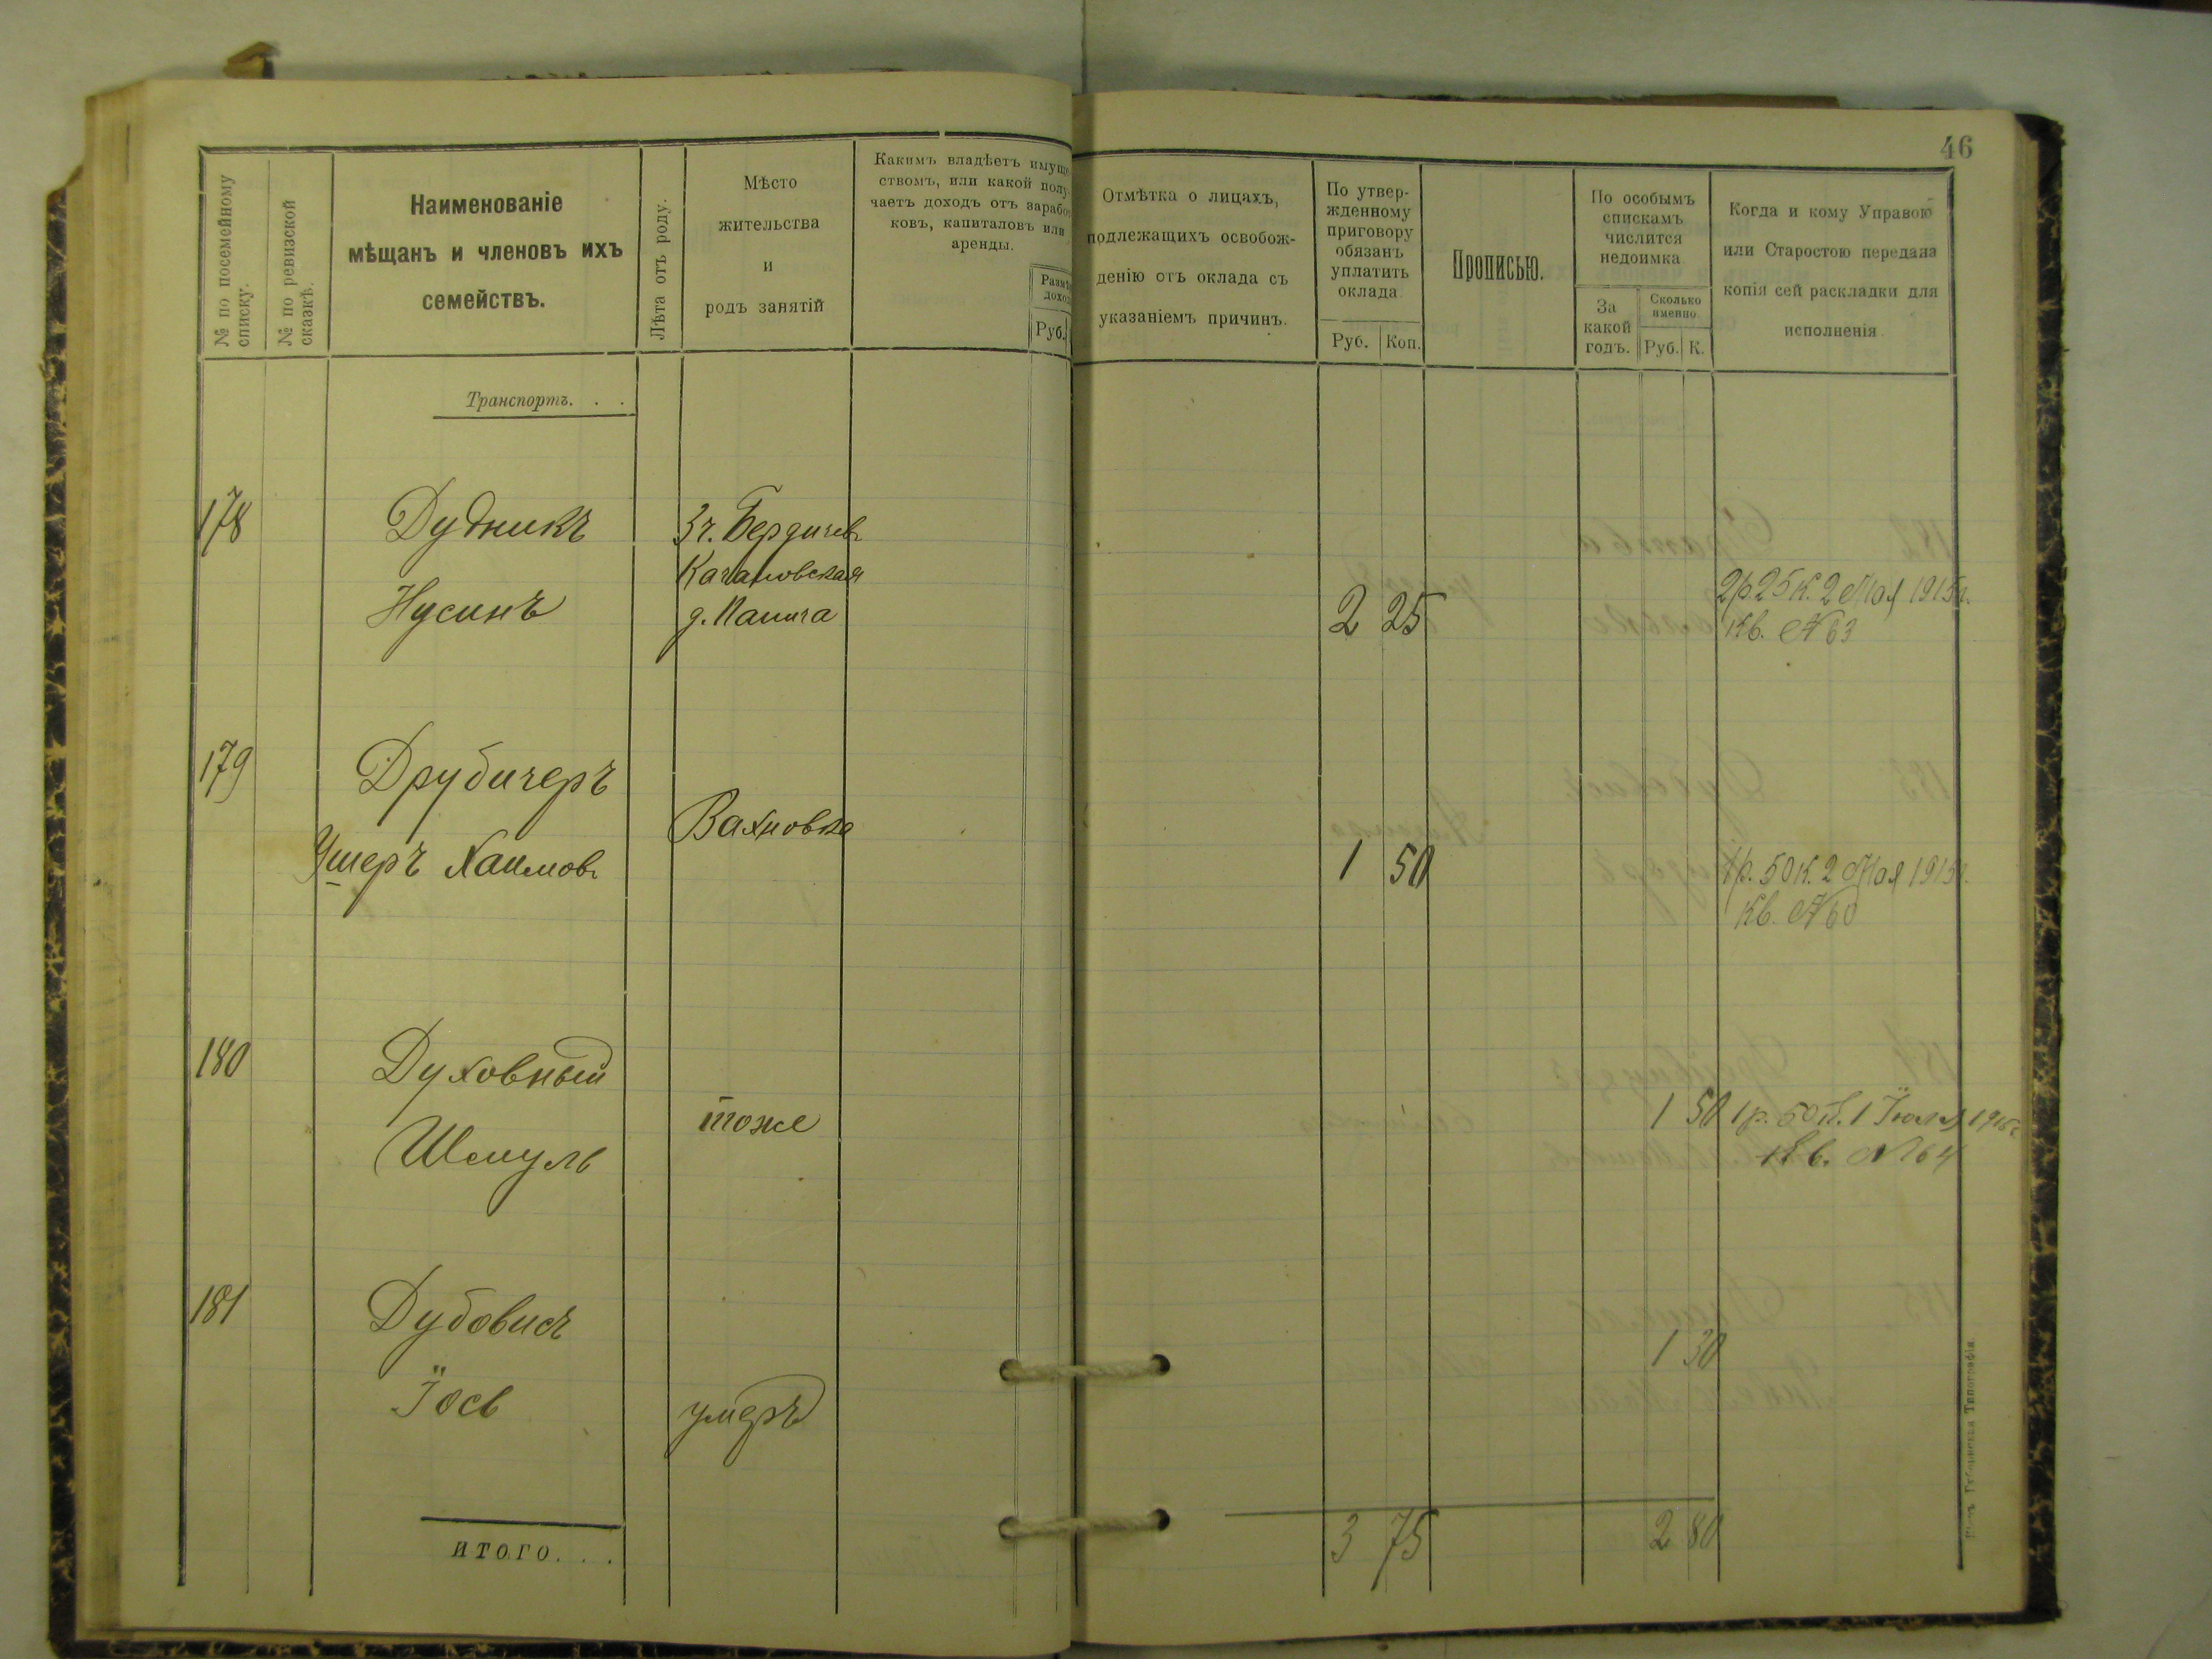 46
№ по посемейному списку.
№ по ревизской сказкѣ.
Наименованіе
мѣщанъ и членовъ ихъ
семействъ.
Лѣта отъ роду.
Мѣсто
жительства
и
родъ занятій
Какимъ владѣетъ имуще
ствомъ, или какой полу
чаетъ доходъ отъ зарабо
ковъ, капиталовъ или
аренды.
Разм
дохо
Руб.
Отмѣтка о лицахъ,
подлежащихъ освобож-
денію отъ оклада съ
указаніемъ причинъ.
По утвер-
жденному
приговору
обязанъ
уплатить
оклада
Руб. Коп.
Прописью.
По особымъ
спискамъ
числится
недоимка
За
какой
годъ.
Сколько
именно.
Руб. К.
Когда и кому Управою
или Старостою передана
копія сей раскладки для
исполненія.
Транспортъ. . .
178 Дудникъ
Нусинъ
Бердичевъ
Качановская
2 25
2р. 25 к. 2 Мая 1915г.
Кв. № 63
179 Друбичеръ
Ушеръ Хаимовъ
Вахновка
1 50
1р. 50 к. 2 Мая 1915г.
Кв. № 60
180 Духовный
Шмуль
тоже
1 50
1р. 50 к. 1 Іюля 1915г.
Кв. № 64
181 Дубовисъ
Іось
умеръ
1 30
итого. . .
3 75
2 80
Типографія.